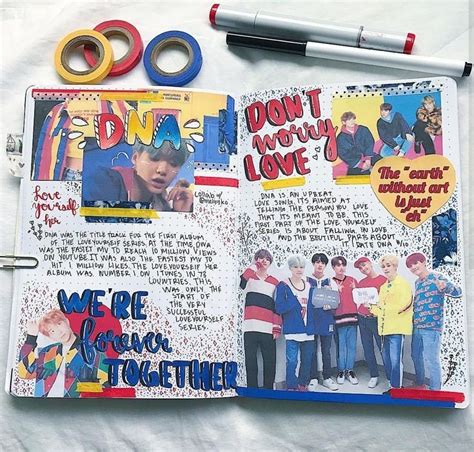 DNA
Love
yourself
her
collab w/
DNA WAS THE TITLE TRACK FOR THE FIRST ALBUM
OF THE LOVE YOURSELF SERIES. AT THE TIME DNA
WAS THE FASTEST MV TO REACH 10 MILLION VIEWS
ON YOUTUBE. IT WAS ALSO THE FASTEST MV TO
HIT 1 MILLION LIKES. THE LOVE YOURSELF HER
ALBUM WAS NUMBER 1 ON ITUNES IN 73
COUNTRIES. THIS
WAS ONLY THE
START OF THE
VERY
SUCCESSFUL
LOVE YOURSELF
SERIES.
WE'RE
forever
TOGETHER
DON'T
worry
LOVE
The "earth"
without art
is just
"eh"
DNA IS AN UPBEAT
LOVE SONG. ITS AIMED AT
TELLING THE PERSON YOU LOVE
THAT ITS MEANT TO BE. THIS
FIRST PART OF THE LOVE YOURSELF
SERIES IS ABOUT FALLING IN LOVE
AND THE BEUTIFUL PARTS ABOUT IT.
I RATE DNA /10